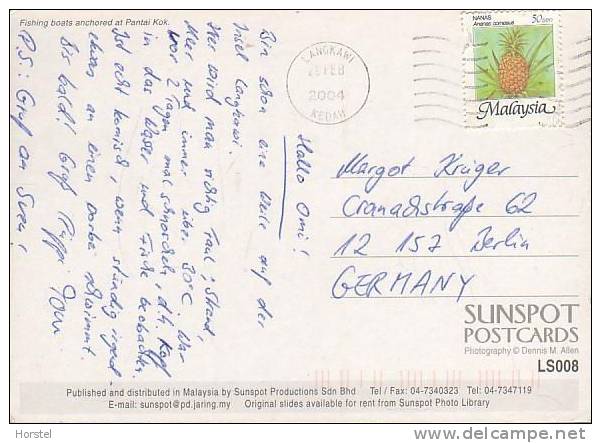 Fishing boats anchored at Pantai Kok.
NANAS
Ananas comosus
50 sen
Malaysia
LANGKAWI
FEB
2004
KEDAH
Hallo Omi!
Bin schon eine Weile auf der
Insel Langkawi.
Hier wird man richtig faul; Strand,
Meer und immer über 30°C. War
vor 2 Tagen mal schnorcheln, d.h. Kopf
in das Wasser und Fische beobachten.
Ist echt komisch, wenn ständig irgend-
etwas an einem vorbei schwimmt.
Bis bald! Gruß Tom
P.S.: Gruß an Sven
Margot Krüger
Cranachstraße 62
12 157 Berlin
GERMANY
SUNSPOT
POSTCARDS
Photography © Dennis M. Allen
LS008
Published and distributed in Malaysia by Sunspot Productions Sdn Bhd Tel / Fax: 04-7340323 Tel: 04-7347119
E-mail: sunspot@pd.jaring.my Original slides available for rent from Sunspot Photo Library
Horstel
delcampe.net